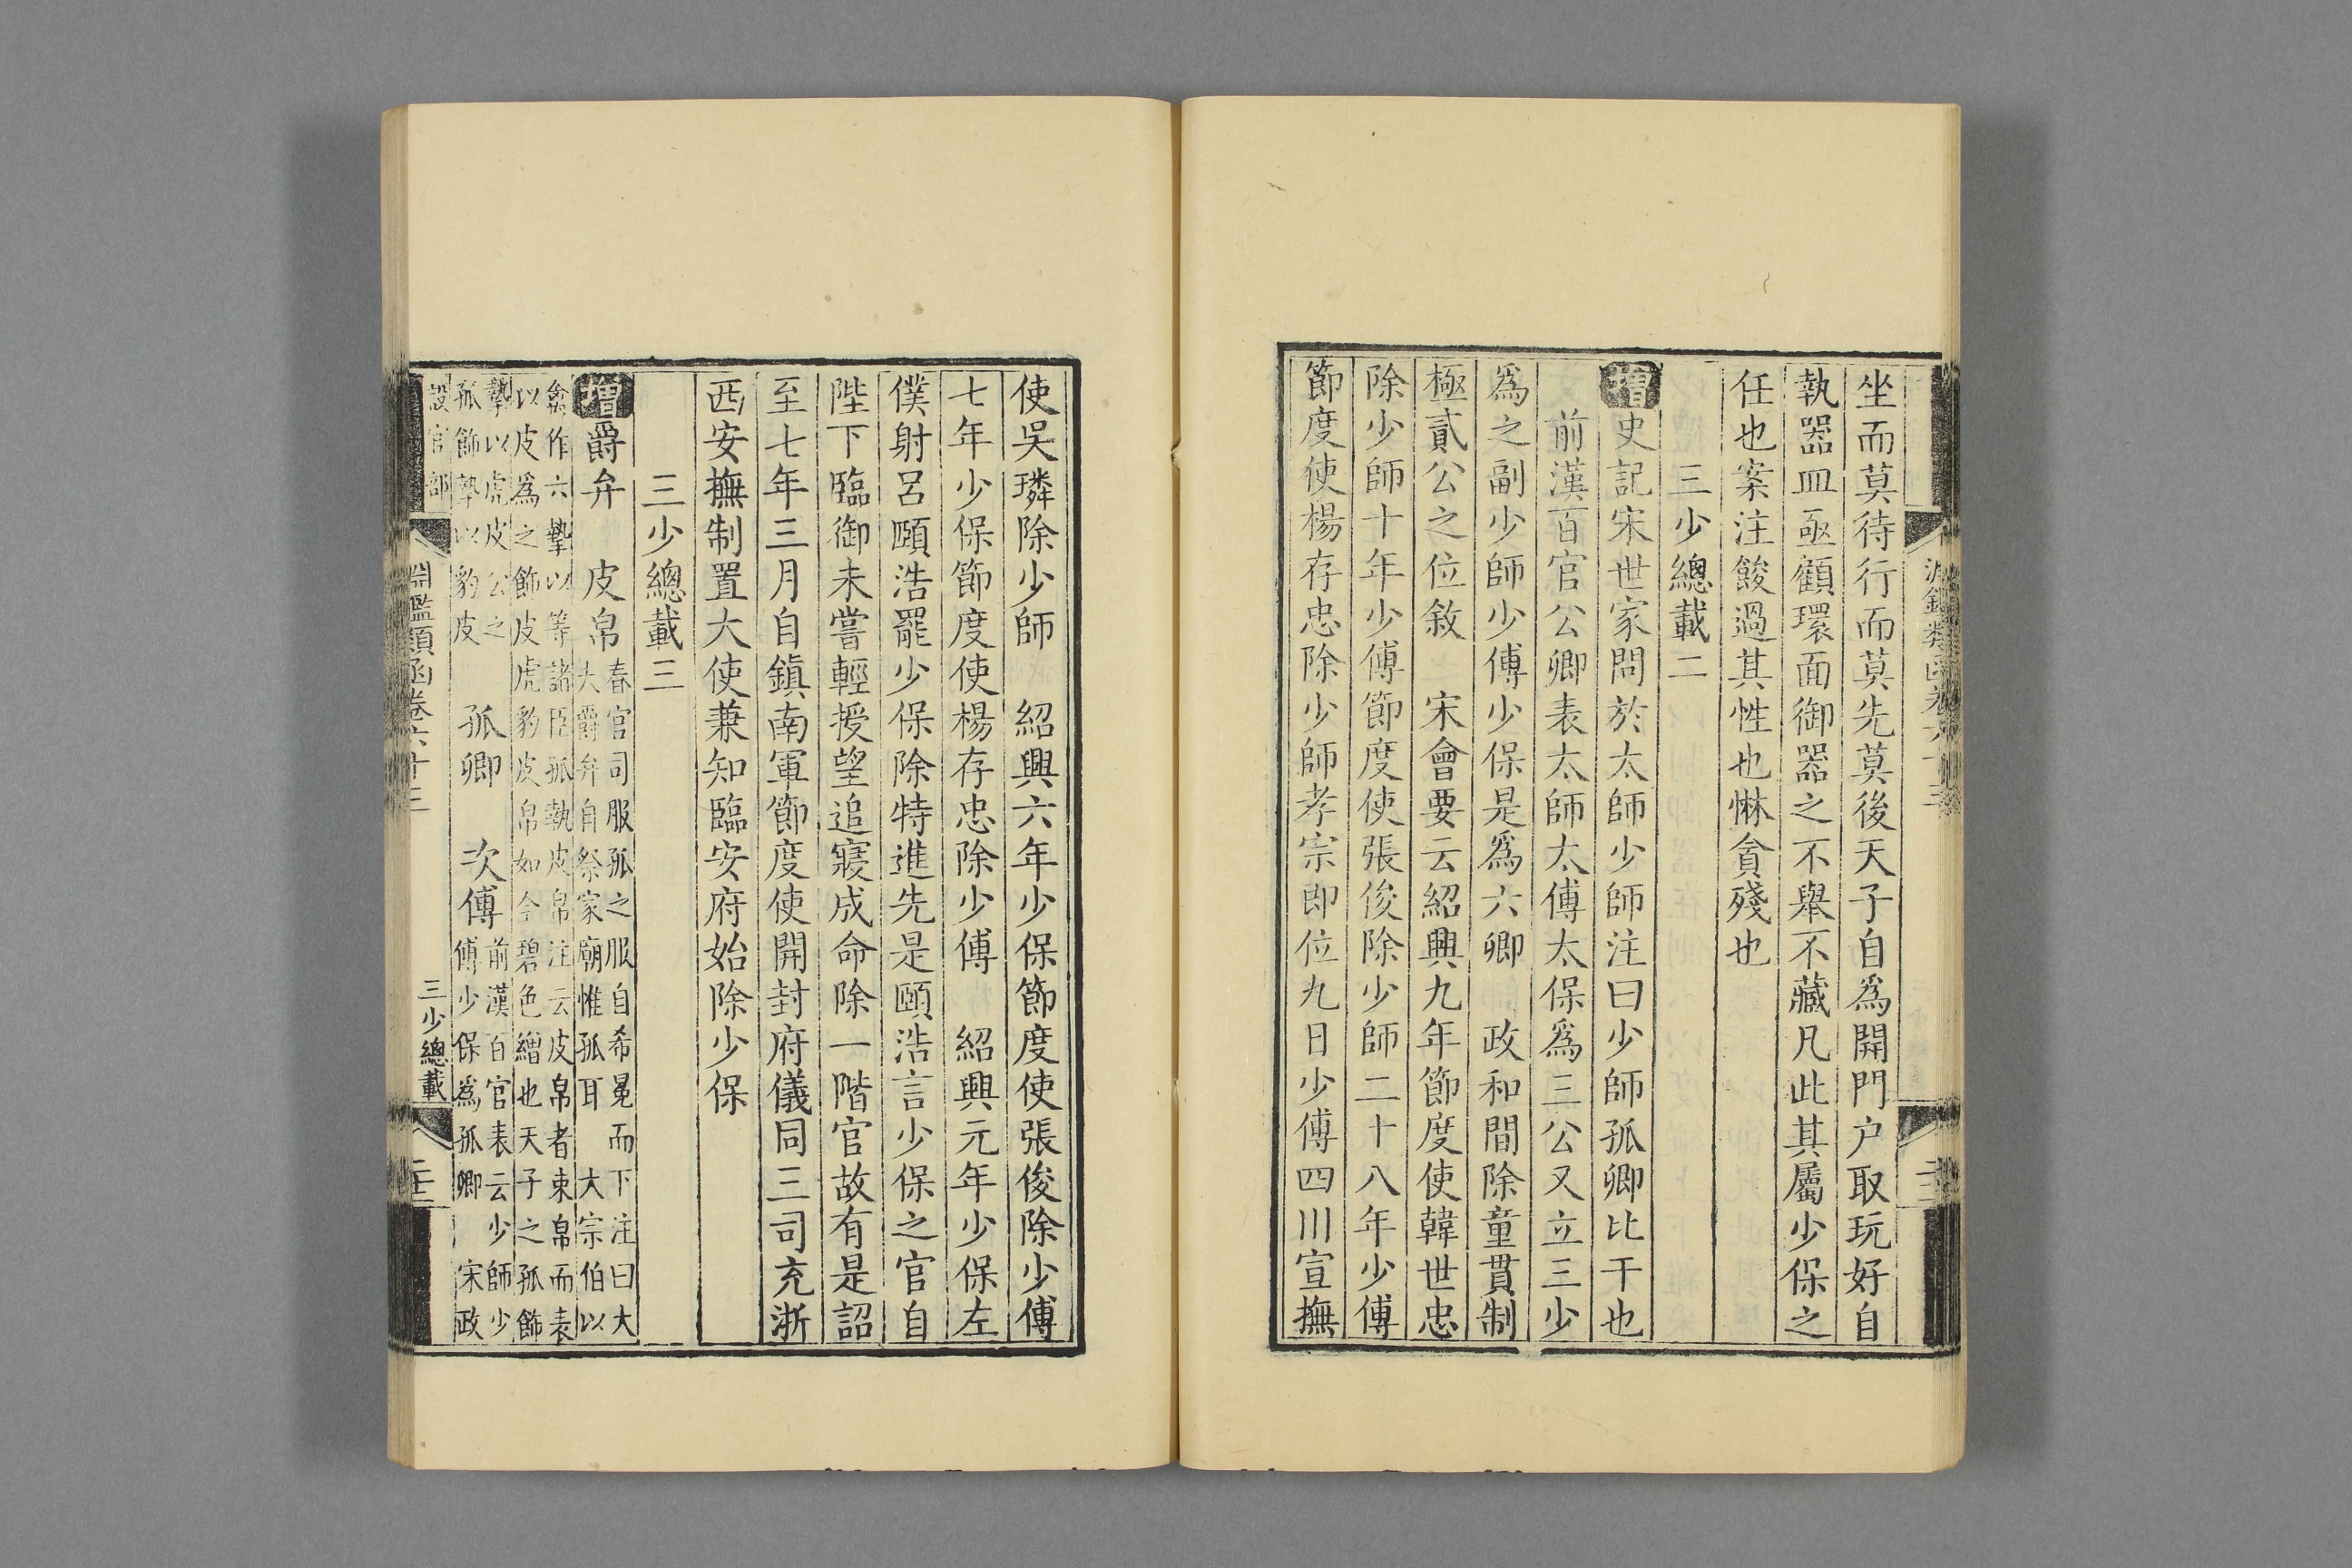 坐而莫待行而莫先莫後天子自爲開門户取玩好自
執器皿亟顧環面御器之不舉不藏凡此其屬少保之
任也案注餕過其性也惏貪殘也
三少總載二
增史記宋世家問於太師少師注曰少師孤卿比干也
前漢百官公卿表太師太傅太保爲三公又立三少
爲之副少師少傅少保是爲六卿　政和間除童貫制
極貳公之位敘　宋會要云紹興九年節度使韓世忠
除少師十年少傅節度使張俊除少師二十八年少傅
節度使楊存忠除少師孝宗卽位九日少傅四川宣撫
使吳璘除少師　紹興六年少保節度使張俊除少傅
七年少保節度使楊存忠除少傅　紹興元年少保左
僕射呂頤浩罷少保除特進先是頤浩言少保之官自
陛下臨御未嘗輕授望追寢成命除一階官故有是詔
至七年三月自鎮南軍節度使開封府儀同三司充浙
西安撫制置大使兼知臨安府始除少保
三少總載三
增爵弁　皮帛
春官司服孤之服自希冕而下注曰大
夫爵弁自祭家廟惟孤耳　大宗伯以
禽作六摯以等諸臣孤執皮帛注云皮帛者束帛而表
以皮爲之飾皮虎豹皮帛如今碧色繒也天子之孤飾
摯以虎皮公之
孤飾摯以豹皮
孤卿　次傅
前漢百官表云少師少
傅少保爲孤卿　宋政
設官部
淵鑑類函卷六十三
三少總載